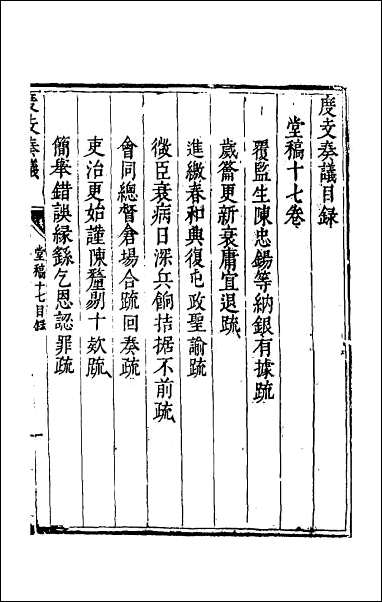 度支奏議目録
堂稿十七卷
覆監生陳忠錫等納銀有據疏
歲籥更新衰庸宜退疏
進繳春和典復屯政聖諭疏
微臣衰病日深兵餉拮据不前疏
會同總督倉場合疏回奏疏
吏治更始謹陳釐剔十欵疏
簡舉錯誤緣繇乞恩認罪疏
度支奏議
堂稿十七目録
一